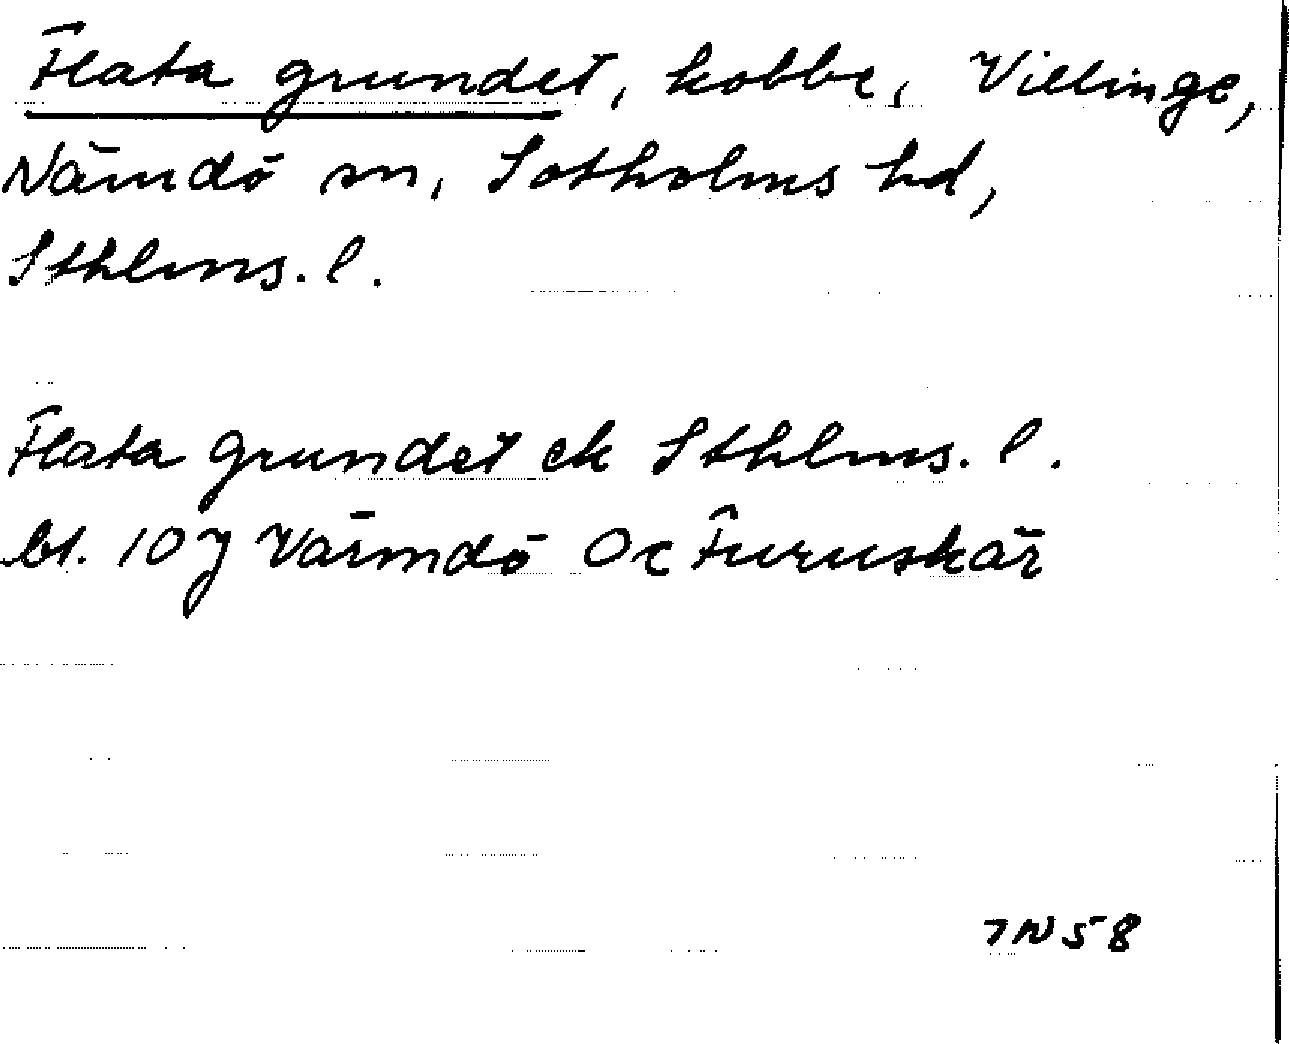 Flata grundet, kobbe, Villinge,
Nämdö sn, Sotholms hd,
Sthlms. l.
Flata grundet ek Sthlms. l.
bl. 107 Värmdö Oc Furuskär
7N58